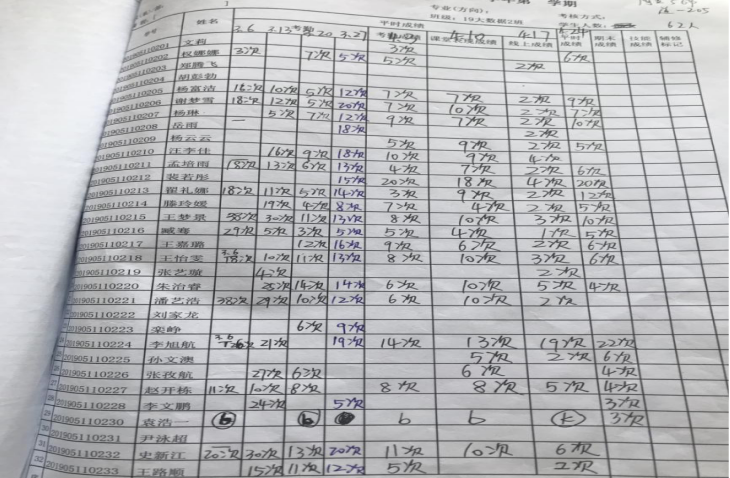 学期
专业(方向):
考核方式:
班级: 19大数据2班
学生人数: 62人
姓名 3.6 3.13 3.20 3.27 平时成绩 4.10 4.17 4.24 平时成绩 期末成绩 技能成绩 辅修标记
201905110201 文莉 3次
201905110202 权娜娜 3次 7次 5次 5次 6次
201905110203 郑腾飞 2次
胡彭勃
201905110205 杨富洁 18次 10次 5次 12次 7次 7次 2次 9次
201905110206 谢梦雪 18次 12次 5次 20次 7次 10次 2次 7次
201905110207 杨琳 5次 7次 12次 9次 7次 2次 10次
201905110208 岳雨 一 18次 2次
201905110209 杨云云 5次 9次 2次 5次
201905110210 汪李佳 16次 9次 18次 10次 9次 4次
201905110211 孟培雨 18次 13次 6次 13次 4次 7次 2次 6次
201905110212 裴若彤 15次 20次 18次 4次 20次
201905110213 翟礼娜 18次 11次 5次 14次 3次 9次 2次 12次
201905110214 滕玲媛 19次 4次 8次 7次 4次 2次 5次
201905110215 王梦景 38次 30次 11次 13次 8次 10次 3次 10次
201905110216 臧骞 29次 5次 3次 5次 5次 4次 1次 5次
201905110217 王嘉璐 12次 16次 9次 6次 2次 6次
201905110218 王怡雯 3.6 18次 10次 11次 13次 8次 10次 3次 6次
201905110219 张艺璇 4次 2次
201905110220 朱治睿 25次 14次 14次 6次 10次 5次 4次
201905110221 潘艺浩 38次 29次 10次 12次 6次 10次 2次
201905110222 刘家龙
201905110223 栾峥 6次 9次
201905110224 李旭航 3.6 21次 19次 14次 13次 19次 22次
201905110225 孙文澳 5次 2次 6次
201905110226 张孜航 27次 6次 6次 4次
201905110227 赵开栋 11次 10次 8次 8次 8次 5次 4次
201905110228 李文鹏 24次 5次 3次
201905110230 袁浩一 6 6 6 6 3次
201905110231 尹泳超
201905110232 史新江 20次 30次 13次 20次 11次 10次 6次
201905110233 王路顺 15次 11次 12次 5次 2次